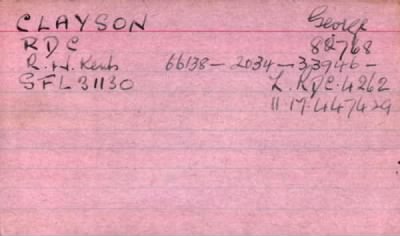 CLAYSON George
RDC 82768
R. W. Kents 66138 - 2034 - 33946 -
SFL 31130 L. RDC. 4262
11. M. 447429